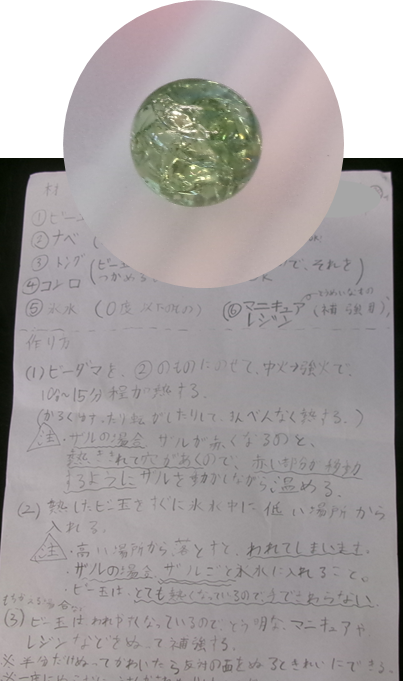 材
①ビー
②ナベ (
③トング (ビー
で、それを)
④コンロ つかめる
⑤氷水 (0度以下のもの) ⑥マニキュア (補強用)
とうめいなもの
レジン
作り方
(1) ビーダマを、②のものにのせて、中火か強火で、
10分~15分程加熱する。
(かるくゆすったり転がしたりして、まんべんなく熱する。)
注・ザルの場合 ザルが赤くなるのと、
熱されて穴があくので、赤い部分が移動
するようにザルを動かしながら、温める。
(2) 熱したビー玉をすぐに氷水中に低い場所から
入れる。
注・高い場所から落とすと、われてしまいます。
・ザルの場合 ザルごと氷水に入れること。
・ビー玉は、とても熱くなっているので手でさわらない。
(3) ビー玉はわれやすくなっているので、とう明な、マニキュアや
レジンなどをぬって補強する。
※半分だけぬってかわいたら反対の面をぬるときれいにできる。